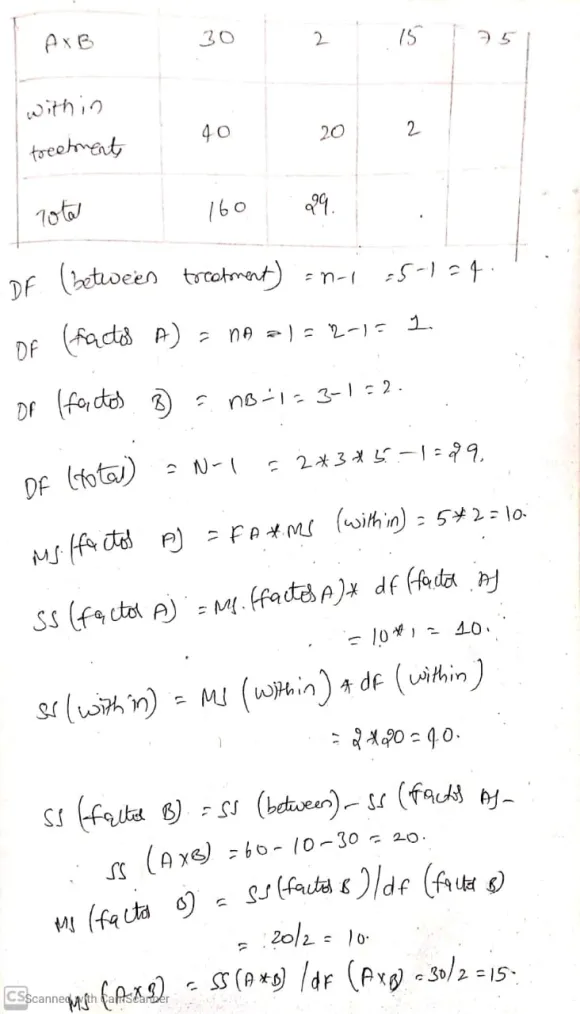 A×B 30 2 15 75
within
treetments 40 20 2
Total 160 29.
DF (between treatment) = n-1 =5-1=4.
DF (factor A) = nA -1 = 2-1= 1.
DF (factor B) = nB-1= 3-1=2.
DF (total) = N-1 = 2*3*5-1=29.
MS.(factor A) = FA*MS (within) = 5*2=10.
SS (factor A) = MS.(factor A)* df (factor A)
= 10*1 = 10.
SS (within) = MS (within) * df (within)
= 2*20=40.
SS (factor B) = SS (between)- SS (factor A)-
SS (A×B) =60-10-30 = 20.
MS (factor B) = SS(factor B)/df (factor B)
= 20/2 = 10.
MS (A×B) = SS(A*B) /df (A×B) =30/2=15.
CS Scanned with CamScanner